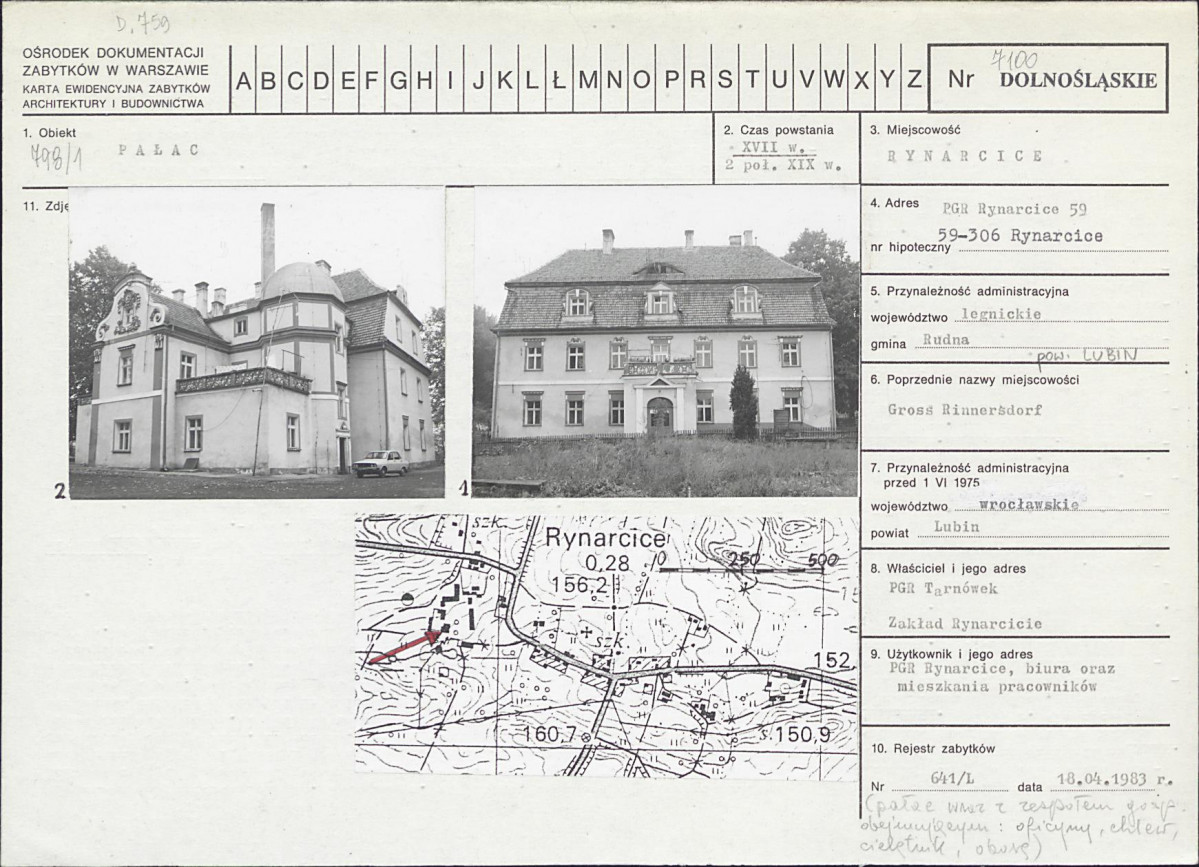 D. 759
OŚRODEK DOKUMENTACJI
ZABYTKÓW W WARSZAWIE
KARTA EWIDENCYJNA ZABYTKÓW
ARCHITEKTURY I BUDOWNICTWA
A B C D E F G H I J K L Ł M N O P R S T U V W X Y Z
Nr 7100 DOLNOŚLĄSKIE
1. Obiekt
798/1 PAŁAC
2. Czas powstania
XVII w.
2 poł. XIX w.
3. Miejscowość
RYNARCICE
11. Zdję
2
1
4. Adres PGR Rynarcice 59
59-306 Rynarcice
nr hipoteczny
5. Przynależność administracyjna
województwo legnickie
gmina Rudna
pow. LUBIN
6. Poprzednie nazwy miejscowości
Gross Rinnersdorf
7. Przynależność administracyjna
przed 1 VI 1975
województwo wrocławskie
powiat Lubin
8. Właściciel i jego adres
PGR Tarnówek
Zakład Rynarcicie
9. Użytkownik i jego adres
PGR Rynarcice, biura oraz
mieszkania pracowników
10. Rejestr zabytków
Nr 641/L data 18.04.1983 r.
(pałac wraz z zespołem gosp.
obejmującym: oficyny, chlew,
cielętnik, oborę)
szk.
Rynarcice
0,28
156,2
0 250 500
szk.
152,
160,7
s.150,9